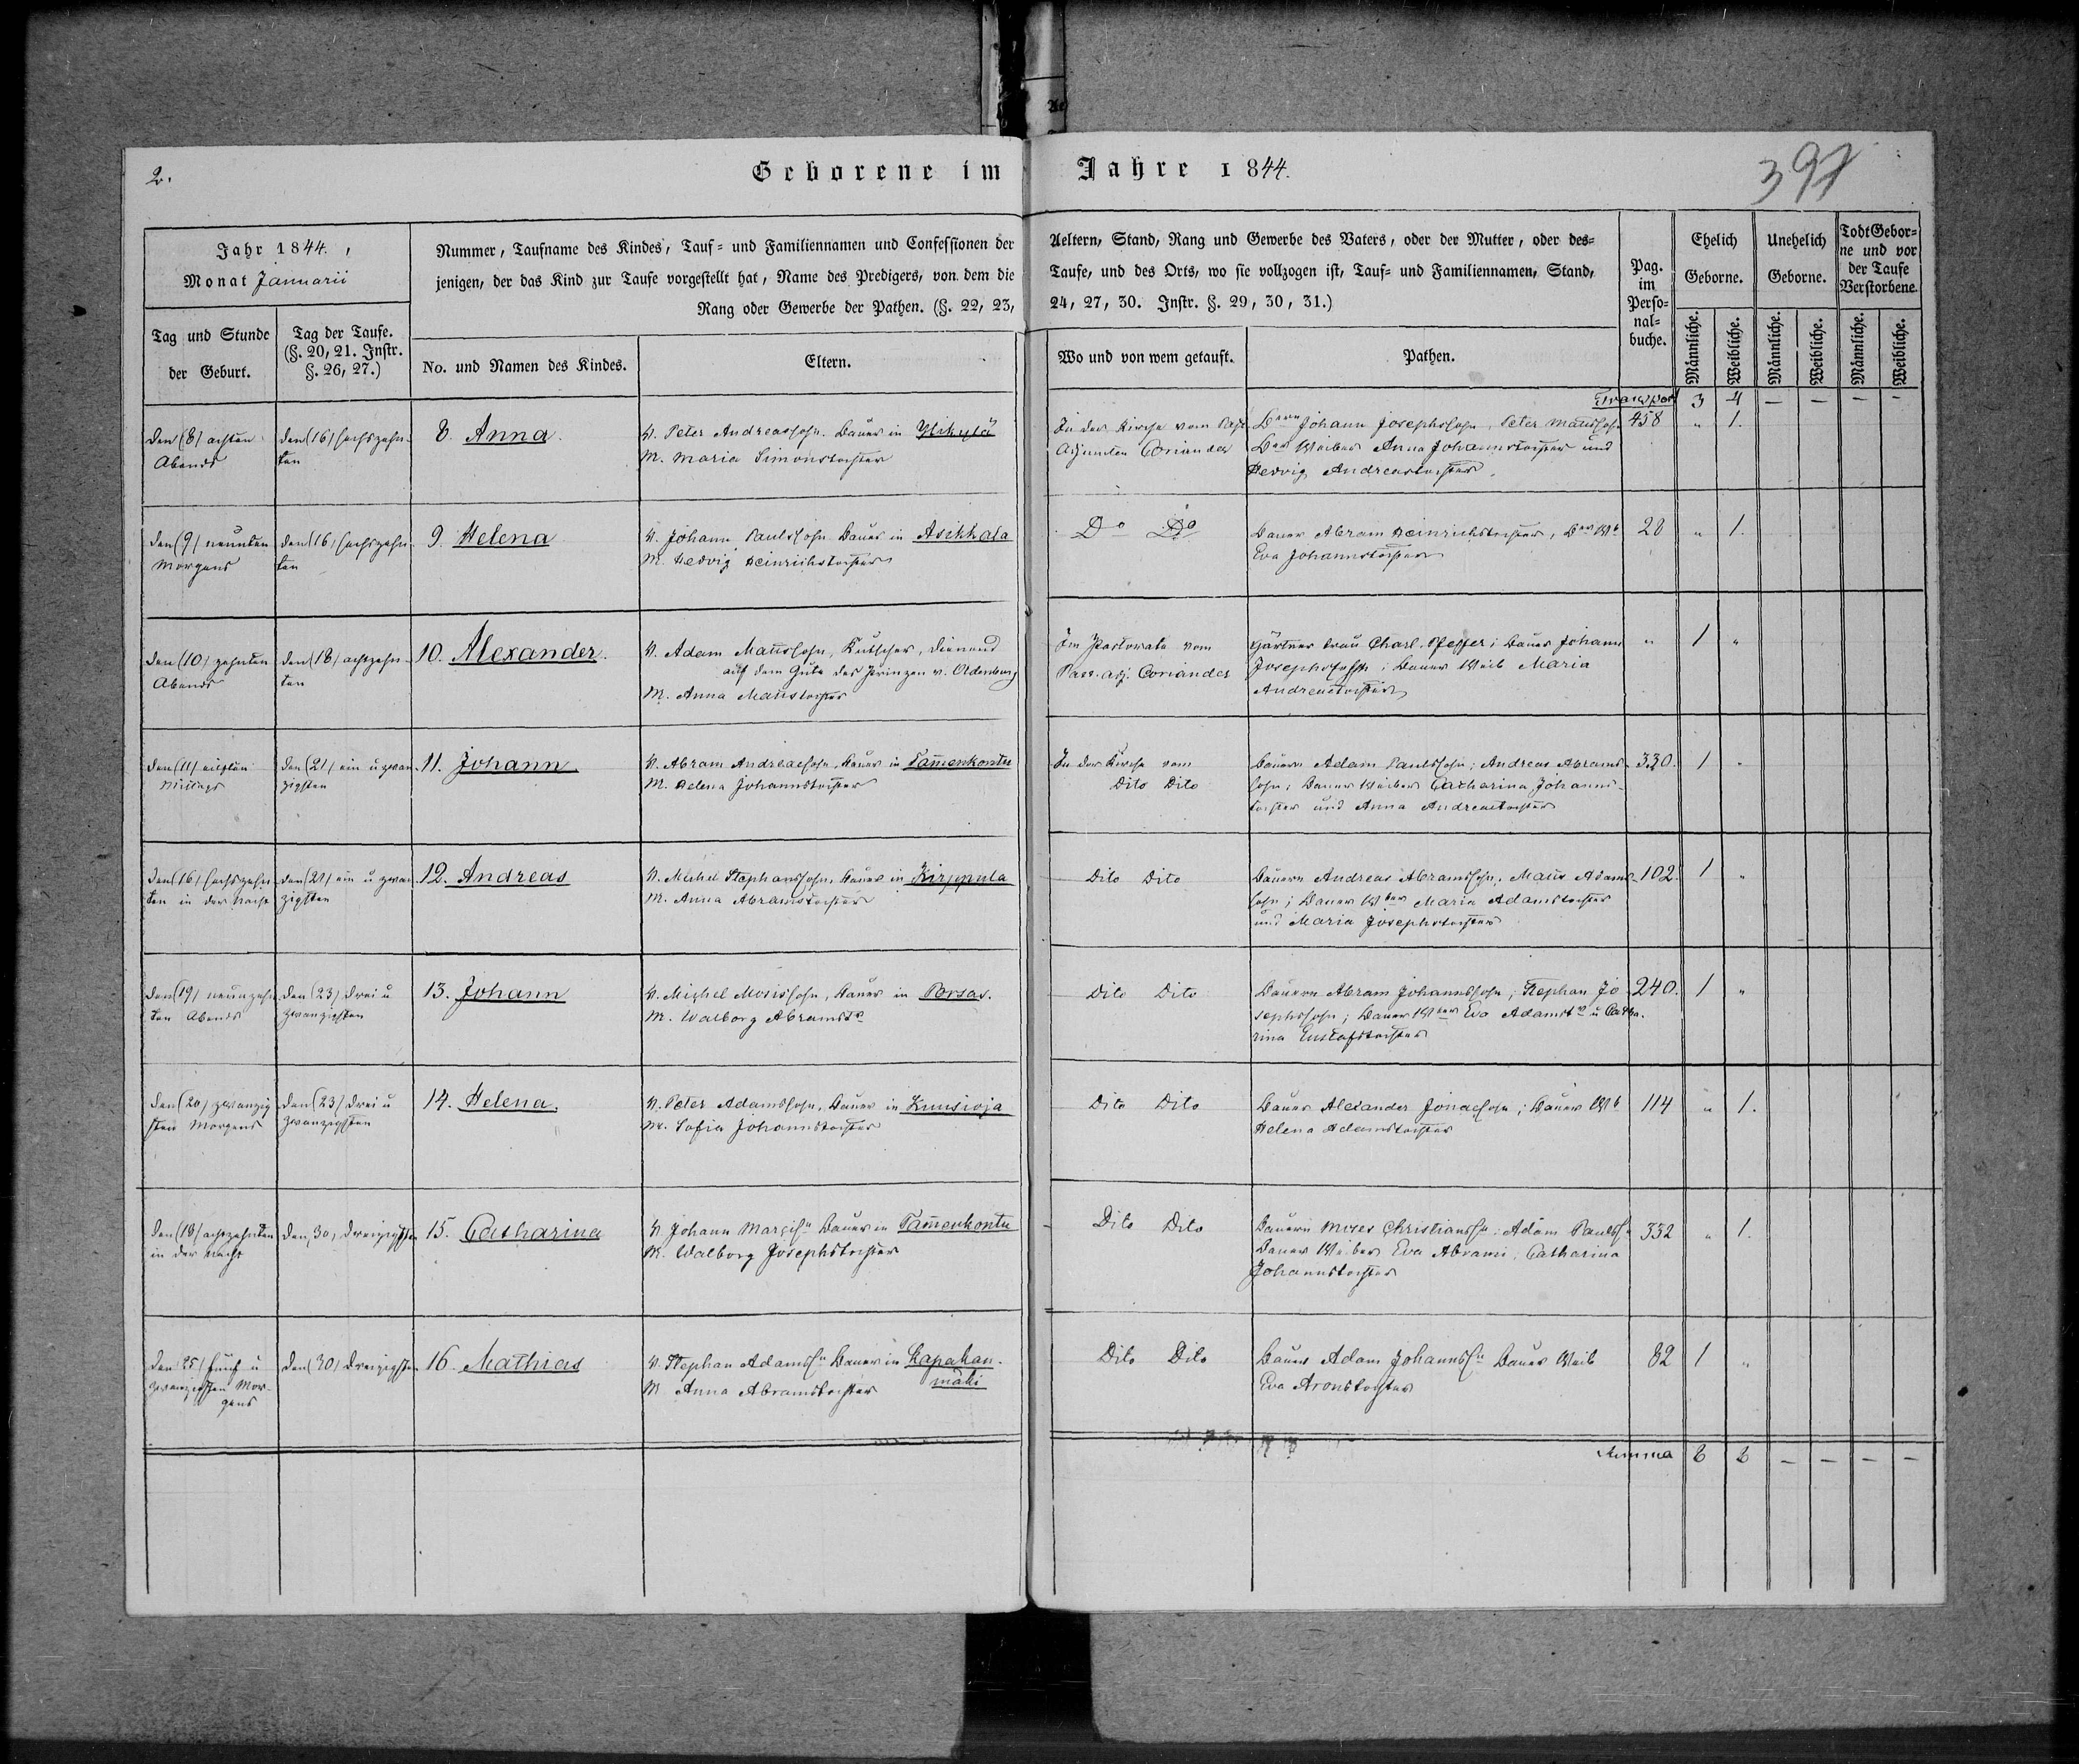 2.
Geborene im Jahre 1844.
397
Jahr 1844.
Monat Januarii
Nummer, Taufname des Kindes, Tauf- und Familiennamen und Confessionen der Aeltern, Stand, Rang und Gewerbe des Vaters, oder der Mutter, oder des=
jenigen, der das Kind zur Taufe vorgestellt hat, Name des Predigers, von dem die Taufe, und des Orts, wo sie vollzogen ist, Tauf- und Familiennamen, Stand,
Rang oder Gewerbe der Pathen. (§. 22, 23, 24, 27, 30. Instr. §. 29, 30, 31.)
Tag und Stunde
der Geburt.
Tag der Taufe.
(§. 20, 21. Instr.
§. 26, 27.)
No. und Namen des Kindes.
Eltern.
Wo und von wem getauft.
Pathen.
Pag.
im
Perso=
nal=
buche.
Ehelich
Geborne.
Unehelich
Geborne.
Todt Gebor=
ne und vor
der Taufe
Verstorbene.
Männliche.
Weibliche.
Männliche.
Weibliche.
Männliche.
Weibliche.
Transport 3 4 — — — —
den (8) achten
Abends
den (16) sechszehn-
ten
8. Anna.
V. Peter Andreassohn. Bauer in Ylikylä
M. Maria Simonstochter
In der Kirche vom Past.
Adjuncten Coriander
Johann Josephssohn, Peter Matssohn
Weiber Anna Johannstochter und
Hedvig Andreastochter.
458 " 1.
den (9) neunten
Morgens
den (16) sechszehn-
ten
9. Helena
V. Johann Paulssohn Bauer in Asikkala
M. Hedvig Heinrichstochter
Do Do
Bauer Abram Heinrichstochter,
Eva Johannstochter
28 " 1.
den (10) zehnten
Abends
den (18) achtzehn-
ten
10. Alexander.
V. Adam Matssohn, Kutscher, dienend
auf dem Gute des Prinzen v. Oldenburg
M. Anna Matstochter
Im Pastorate vom
Past. adj. Coriander
Gärtner Frau Charl. Pfeffer; Bauer Johann
Josephssohn; Bauer Weib Maria
Andreastochter
" 1 "
den (11) eilften
Mittags
den (21) ein u zwan
zigsten
11. Johann
V. Abram Andreassohn, Bauer in Tam̄enkontu
M. Helena Johannstochter
In der Kirche vom
Dito Dito
Bauern Adam Paulssohn; Andreas Abrams-
sohn; Bauer Weiber Catharina Johanns-
tochter und Anna Andreastochter
330. 1 "
den (16) sechszehn
ten in der Nacht
den (21) ein u zwan
zigsten
12. Andreas
V. Michel Stephanssohn, Bauer in Kirppula
M. Anna Abramstochter
Dito Dito
Bauern Andreas Abramssohn, Mats Adams-
sohn; Bauer Maria Adamstochter
und Maria Josephstochter
102. 1 "
den (19) neunzehn
ten Abends
den (23) drei u
zwanzigsten
13. Johann
V. Michel Mosissohn, Bauer in
M. Walborg Abramst
Dito Dito
Bauern Abram Johannssohn; Stephan Jo
sephssohn; Bauer Eva Adamst u Catha.
rina Gustafstochter
240. 1 "
den (20) zwanzig
sten Morgens
den (23) drei u
zwanzigsten
14. Helena.
V. Peter Adamssohn, Bauer in Kuusioja
M. Sofia Johannstochter
Dito Dito
Bauer Alexander Jonassohn; Bauer
Helena Adamstochter
114 " 1.
den (18) achtzehnten
in der Nacht
den (30) dreizigsten
15. Catharina
V. Johann Bauer in Tam̄enkontu
M. Walborg Josephstochter
Dito Dito
Bauern Moses Christianss. Adam Paulss
Bauer Weiber Eva Catharina
Johannstochter
332 " 1.
den (25) fünf u
zwanzigsten Mor-
gens
den (30) dreizigsten
16. Mathias
V. Stephan Adamss Bauer in Kapakan-
mäki
M. Anna Abramstochter
Dito Dito
Bauer Adam Johannss Bauer Weib
Eva Aronstochter
82 1 "
Summa — — — —